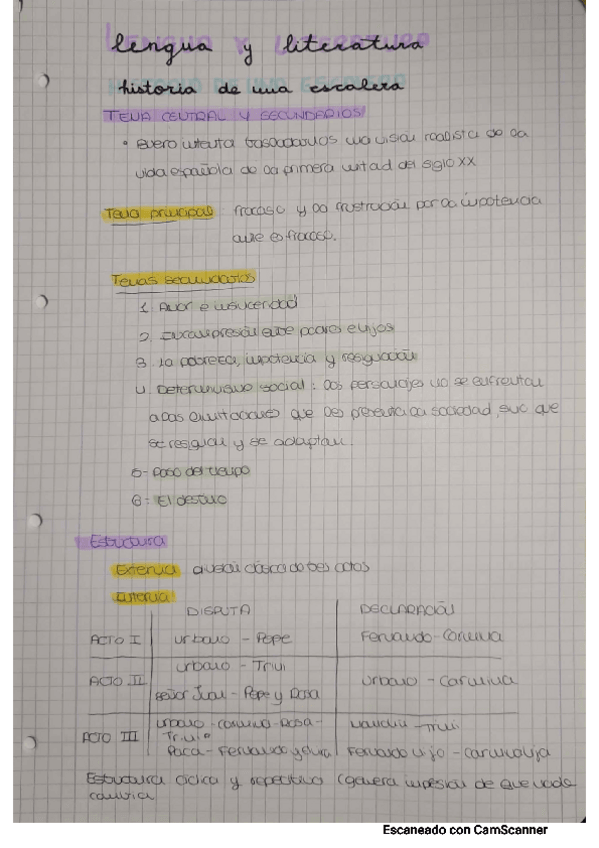 lengua y literatura
historia de una escalera
TEMA CENTRAL Y SECUNDARIOS
• Buero intenta trasladarnos una visión realista de la
vida española de la primera mitad del siglo XX
Tema principal fracaso y la frustración por la impotencia
ante el fracaso.
Temas secundarios
1. Amor e insinceridad
2. Incompresión entre padres e hijos
3. La pobreza, impotencia y resignación
4. Determinismo social: los personajes no se enfrentan
a las limitaciones que les presenta la sociedad, sino que
se resignan y se adaptan.
5- Paso del tiempo
6- El destino
Estructura
Externa división clásica de tres actos
Interna
DISPUTA DECLARACIÓN
ACTO I Urbano - Pepe Fernando - Carmina
ACTO II Urbano - Trini Urbano - Carmina
señor Juan - Pepe y Rosa
ACTO III Urbano - Carmina - Rosa - Manolín - Trini
Trini
Paca - Fernando y Elvira Fernando hijo - Carmina hija
Estructura cíclica y repetitiva (genera impresión de que nada
cambia
Escaneado con CamScanner